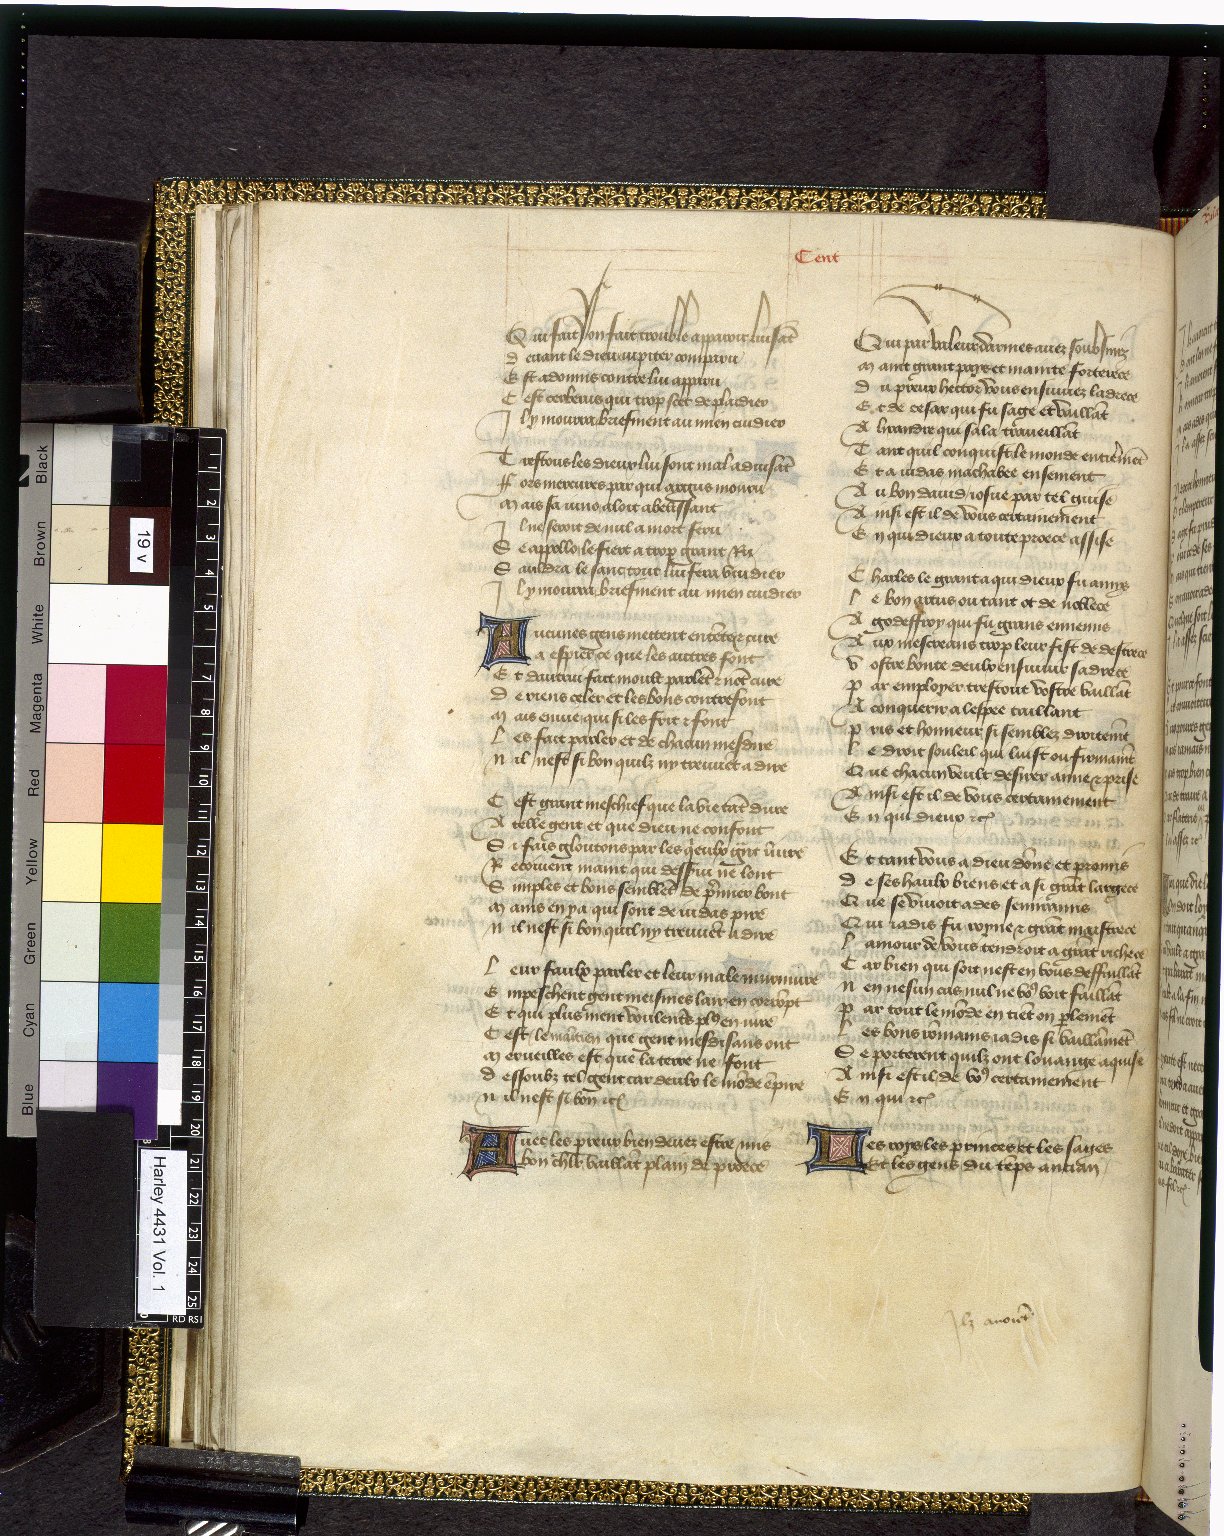 Cent
Qui fait son fait trouble apparoir luisãt
d euant le dieu iupiter comparu
E st adonnis contre lui apparu
C est cerberus qui trop scet de plaidier
I l y mourra briefment au mien cuidier
T restous les dieux lui sont mal aduisãt
F ors mercures par qui argus mouru
M ais sa iuno aloit abelissant
I l ne seroit de nul a mort feru
S e appollo le fiert a trop grant ru
S auldra le sanc tout lui fera vuidier
I l y mourra briefment au mien cuidier
A ucunes gens mettent entẽte cure
a espier ce que les autres font
E t dautrui fait moult parlẽt not cure
d e riens celer et les bons contrefont
M ais enuie qui si les frit font
L es fait parler et de chacun mesdire
n il nest si bon quilz ny treuuẽt a dire
C est grant meschief que la vie tãt dure
A telle gent et que dieu ne confont
S i fais gloutons par les quieulx grãt iniure
R ecoiuent maint qui desserui ne lont
S imples et bons semblẽt de prĩmer bont
M ains en ya qui sont de iudas pire
n il nest si bon quil ny treuuẽt a dire
L eur faulx parler et leur male murmure
E mpeschent gent meismes lair en corrõpt
E t qui plus ment voulentˢ plˢ en iure
C est le maintien que gent mesdisans ont
M erueilles est que la terre ne font
d essoubz tel gent car deulx le mõde ẽpire
n il nest si bon etc
A uec les preux bien deuez estre mis
bon chlr vaillãt plain de proece
Qui par valeur darmes auez soubzmis
M aint grant pays et mainte forterece
d u preux hector vous ensuiuez ladrece
E t de cesar qui fu sage et vaillãt
A lixandre qui sala trauaillant
T ant quil conquist le monde entieremẽt
E t a iudas machabee ensement
A u bon dauid iosue par tel guise
A insi est il de vous certainement
E n qui dieux a toute proece assise
C harles le grant a qui dieux fu amys
L e bon artus ou tant ot de noblece
A godeffroy qui fu grans ennemis
A ux mescreans trop leur fist de destrece
V ostre bonte deulx ensuiuir sadrece
P ar employer trestout vostre vaillãt
A conquerir a lespee taillant
P ris et honneur si semblez droitemẽt
L e droit souleil qui luist ou firmamẽt
Q ue chacun veult desirer aime prise
A insi est il de vous certainement
E n qui dieux etc
E t tant vous a dieu dõne et promis
d e ses haulx biens et a si grãt largece
Q ue se viuoit ades semiramis
Q ui iadis fu royne grãt maistrece
L amour de vous tendroit a grãt richece
C ar bien qui soit nest en vous deffaillãt
n en nesun cas nul ne voˢ voit faillãt
P ar tout le mõde en tiẽt on parlemẽt
L es bons rommains iadis si vaillãmẽt
S e porterent quilz ont louange aquise
A insi est il de voˢ certainement
E n qui etc
L es roys les princes et les sages
Et les gens du tẽps ancian
Ilz auoiẽt
19 v
Harley 4431 Vol. 1
Black
Brown
White
Magenta
Red
Yellow
Green
Cyan
Blue
1
2
3
4
5
6
7
8
9
10
11
12
13
14
15
16
17
18
19
20
21
22
23
24
25